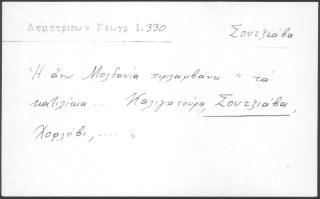 Δημητριεων Γεωγρ 1.330
Σουτζιάβα
Ἡ ἄνω Μολδανία περιλαμβάνει " τὰ
κατιλίκια .... Καλιγατούρα, Σουτζιάβα,
Χορλόβι, .... "